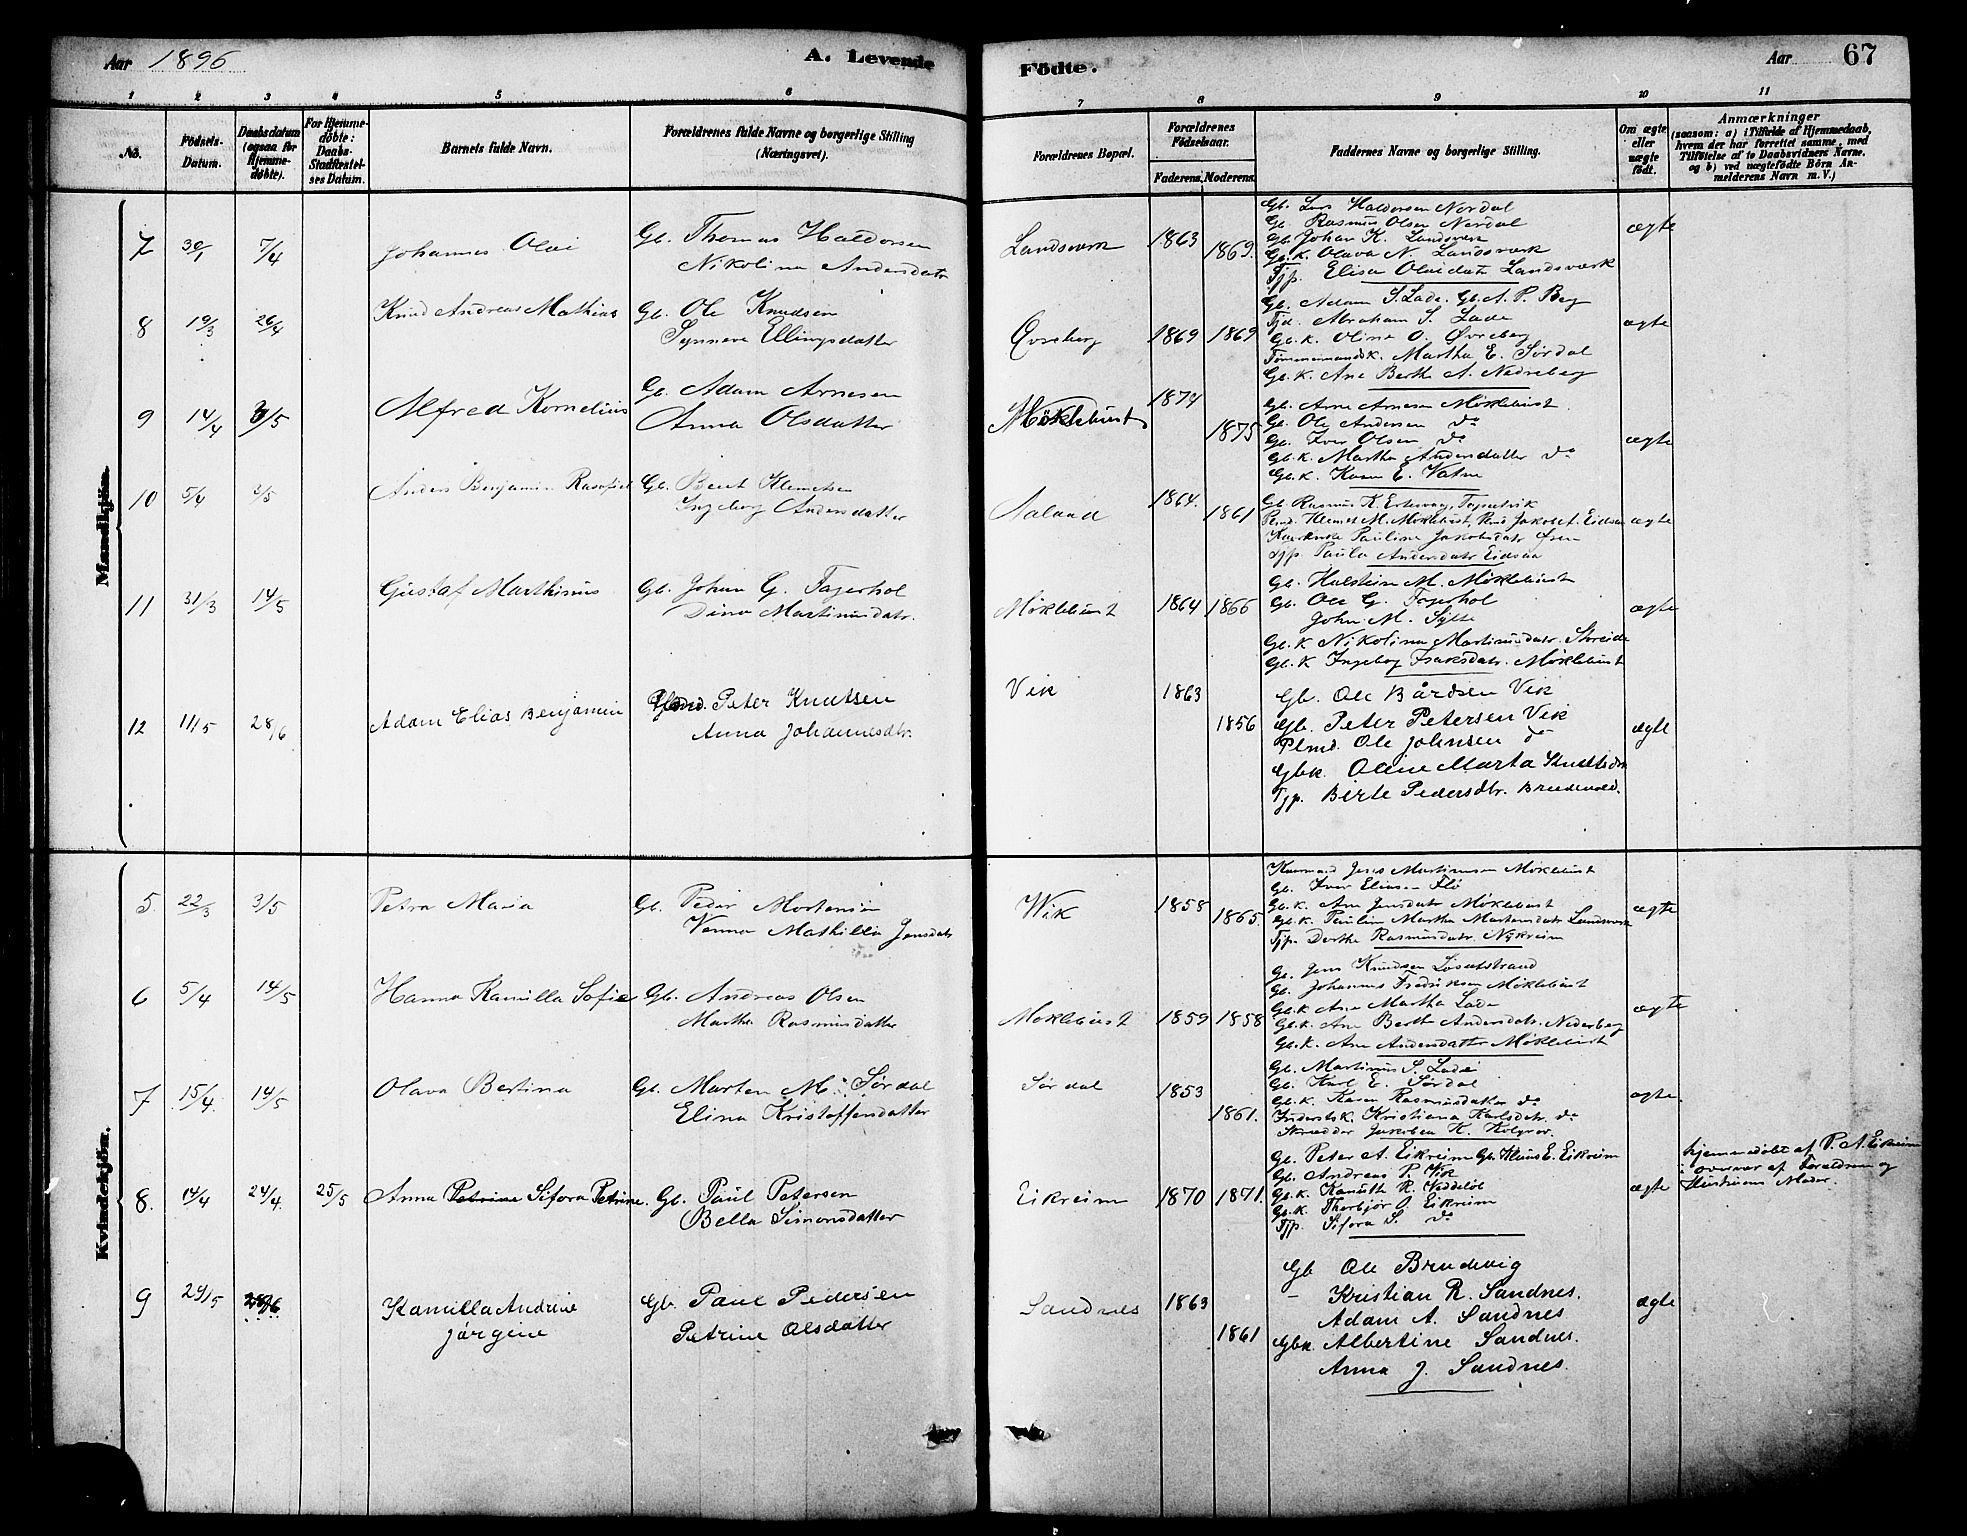 Aar 1896
A. Levende
Födte.
Aar
67
1 2 3 4 5 6 7 8 9 10 11
No.
Födsels-Datum.
Daabsdatum (ogsaa for Hjemme-döbte).
For Hjemme-döbte: Daabs-Stadfæstel-ses Datum.
Barnets fulde Navn.
Forældrenes fulde Navne og borgerlige Stilling (Næringsvei).
Forældrenes Bopæl.
Forældrenes Födselsaar.
Faderens. Moderens.
Faddernes Navne og borgerlige Stilling.
Om ægte eller uægte født.
Anmærkninger
(saasom: a) i Tilfælde af Hjemmedaab, hvem der har forrettet samme, med Tilföielse af to Daabsvidners Navne, og b) ved uægtefödte Börn An-melderens Navn m. V.)
Mandkjön.
7 30/1 7/4 Johannes Olai
Gb. Thomas Haldorsen
Nikolina Andersdatr
Landsverk 1863 1869.
Gb. Lars Haldorsen Nordal
Gb. Rasmus Olsen Nordal
Gb. Johan K. Landsverk
Gb. K. Olava N. Landsværk
Tjp. Elisa Olaidatr Landsværk
ægte
8 19/3 26/4 Knud Andreas Mathias
Gb. Ole Knudsen
Synneve Ellingsdatter
Øvreberg 1869 1869
Gb. Adam S. Lade. Gb. A. P. Berg
Tjd. Abraham S. Lade
Gb. K. Olina O. Øvreberg
Tømmermandsk. Martha E. Sørdal
Gb. K. Ane Berth A. Nedreberg
ægte
9 14/4 3/5 Alfred Kornelius
Gb. Adam Arnesen
Anna Olsdatter
Möklebust 1874 1875
Gb. Arne Arnesen Möklebust.
Gb. Ole Andersen do
Gb. Iver Olsen do
Gb. K. Martha Andersdatter do
Gb. K. Karen E. Vatne
ægte
10 5/4 3/5 Anders Benjamin
Gb. Bent Klemetsen
Ingeborg Andersdatter
Aaland 1864. 1861
Gb. Rasmus K.
M. Möklebust, Eidsaa
Pauline Jakobsdatr
Tjp. Paula Andersdatr Eidsaa
ægte
11 31/3 14/5 Gustaf Marthinus
Gb. Johan G. Fagerhol
Dina Martinusdatr.
Möklebust 1864 1866
Gb. Halstein M. Möklebust
Gb. Ole G. Fagerhol
John M. Sylte
Gb. K Nikolina Martinusdatr.
Gb. K Ingeborg Isaksdatr. Möklebust
ægte
12 11/5 28/6 Adam Elias Benjamin
Plmd. Peter Knutsen
Anna Johannesdtr.
Vik 1863 1856
Gb. Ole Bårdsen Vik
Gb. Peter Petersen Vik
Plmd. Ole Johnsen do
Gbk. Oline Marta
Tjp. Birte Pedersdtr. Breidevold.
ægte
Kvindekjön.
5. 22/3 3/5 Petra Maria
Gb. Peder Mortensen
Verna Mathilla Jensdatr
Wik 1858 1865.
Jens Martinusen Möklebust
Gb. Iver Eliasen Flö
Gb. K. Ane Jensdatr Möklebust
Gb. K. Pauline Martha Martensdatr Landsverk
Tjp. Dorthe Rasmusdatr. Nykreim
ægte
6 5/4 14/5 Hanna Kamilla Sofie
Gb. Andreas Olsen
Martha Rasmusdatter
Möklebust 1859 1858
Gb. Jens Knudsen Løsetstrand
Gb. Johannes Fredriksen Möklebust
Gb. K. Ane Martha Lade
Gb. K. Ane Berth Andersdatr. Nedreberg
Gb. K. Ane Andersdatter Möklebust
ægte
7 15/4 14/5 Olava Bertina
Gb. Marten M. Sørdal
Elina Kristoffersdatter
Sørdal 1853 1861.
Gb. Martinus S. Lade
Gb. Karl E. Sørdal
Gb. K. Karen Rasmusdatter do
Inderstk. Kristiana Karlsdatr. do
Skrædder Jakobea K. Kolgrov.
ægte
8. 14/4 24/4. 25/5 Anna Petrine Sifora Petrine.
Gb. Paul Petersen
Bella Simonsdatter
Eikreim 1870 1871.
Gb. Peter A. Eikreim Gb. Klaus E. Eikreim
Gb. Andreas P. Vik
Gb. K. Kanutte R. Veddelöl
Gb. K. Thorbjör O. Eikreim
Tjp. Sifora S. do
ægte
hjemmedøbt af P. A. Eikreim
i overvær af Forældrene og
Hustruens Moder.
9 24/5 28/6 Kamilla Andrine
Jörgine
Gb. Paul Pedersen
Petrine Olsdatter
Sandnes 1863 1861
Gb Ole Brudevig
- Kristian R. Sandnes.
Adam A. Sandnes
Gbk. Albertine Sandnes.
Anna J. Sandnes.
ægte